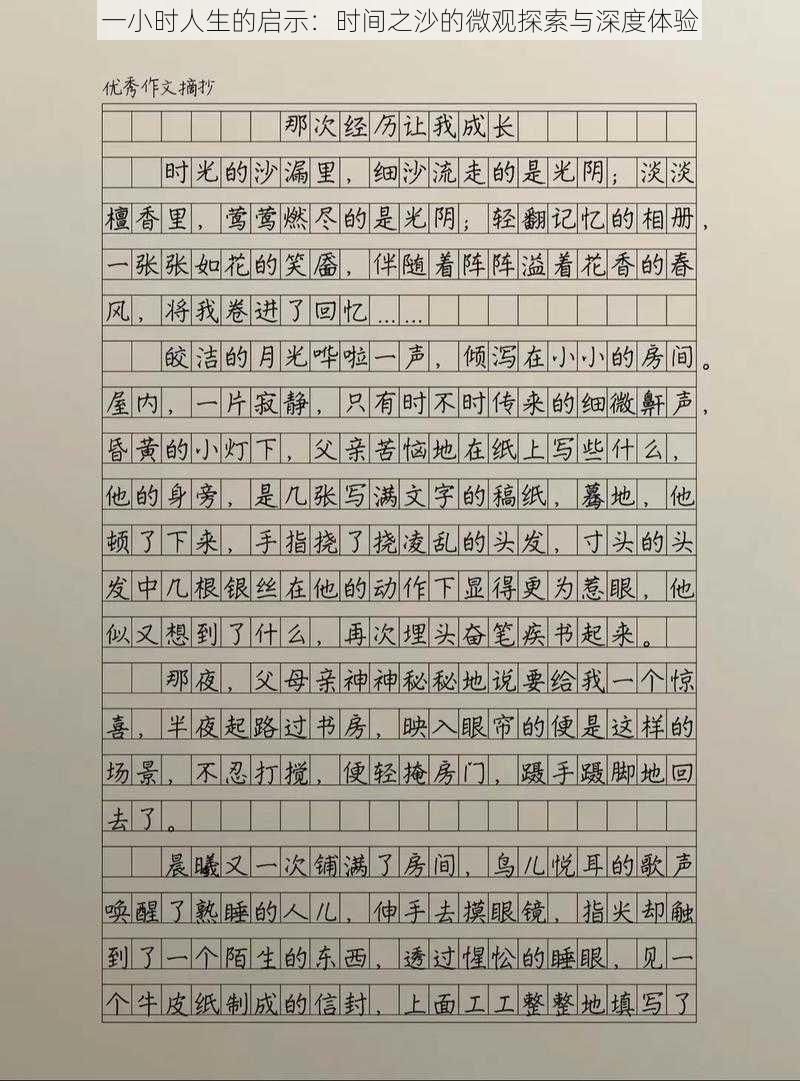 一小时人生的启示：时间之沙的微观探索与深度体验
优秀作文摘抄
那次经历让我成长
时光的沙漏里，细沙流走的是光阴；淡淡
檀香里，莺莺燃尽的是光阴；轻翻记忆的相册，
一张张如花的笑靥，伴随着阵阵溢着花香的春
风，将我卷进了回忆……
皎洁的月光哗啦一声，倾泻在小小的房间。
屋内，一片寂静，只有时不时传来的细微鼾声，
昏黄的小灯下，父亲苦恼地在纸上写些什么，
他的身旁，是几张写满文字的稿纸，蓦地，他
顿了下来，手指挠了挠凌乱的头发，寸头的头
发中几根银丝在他的动作下显得更为惹眼，他
似又想到了什么，再次埋头奋笔疾书起来。
那夜，父母亲神神秘秘地说要给我一个惊
喜，半夜起路过书房，映入眼帘的便是这样的
场景，不忍打搅，便轻掩房门，蹑手蹑脚地回
去了。
晨曦又一次铺满了房间，鸟儿悦耳的歌声
唤醒了熟睡的人儿，伸手去摸眼镜，指尖却触
到了一个陌生的东西，透过惺忪的睡眼，见一
个牛皮纸制成的信封，上面工工整整地填写了